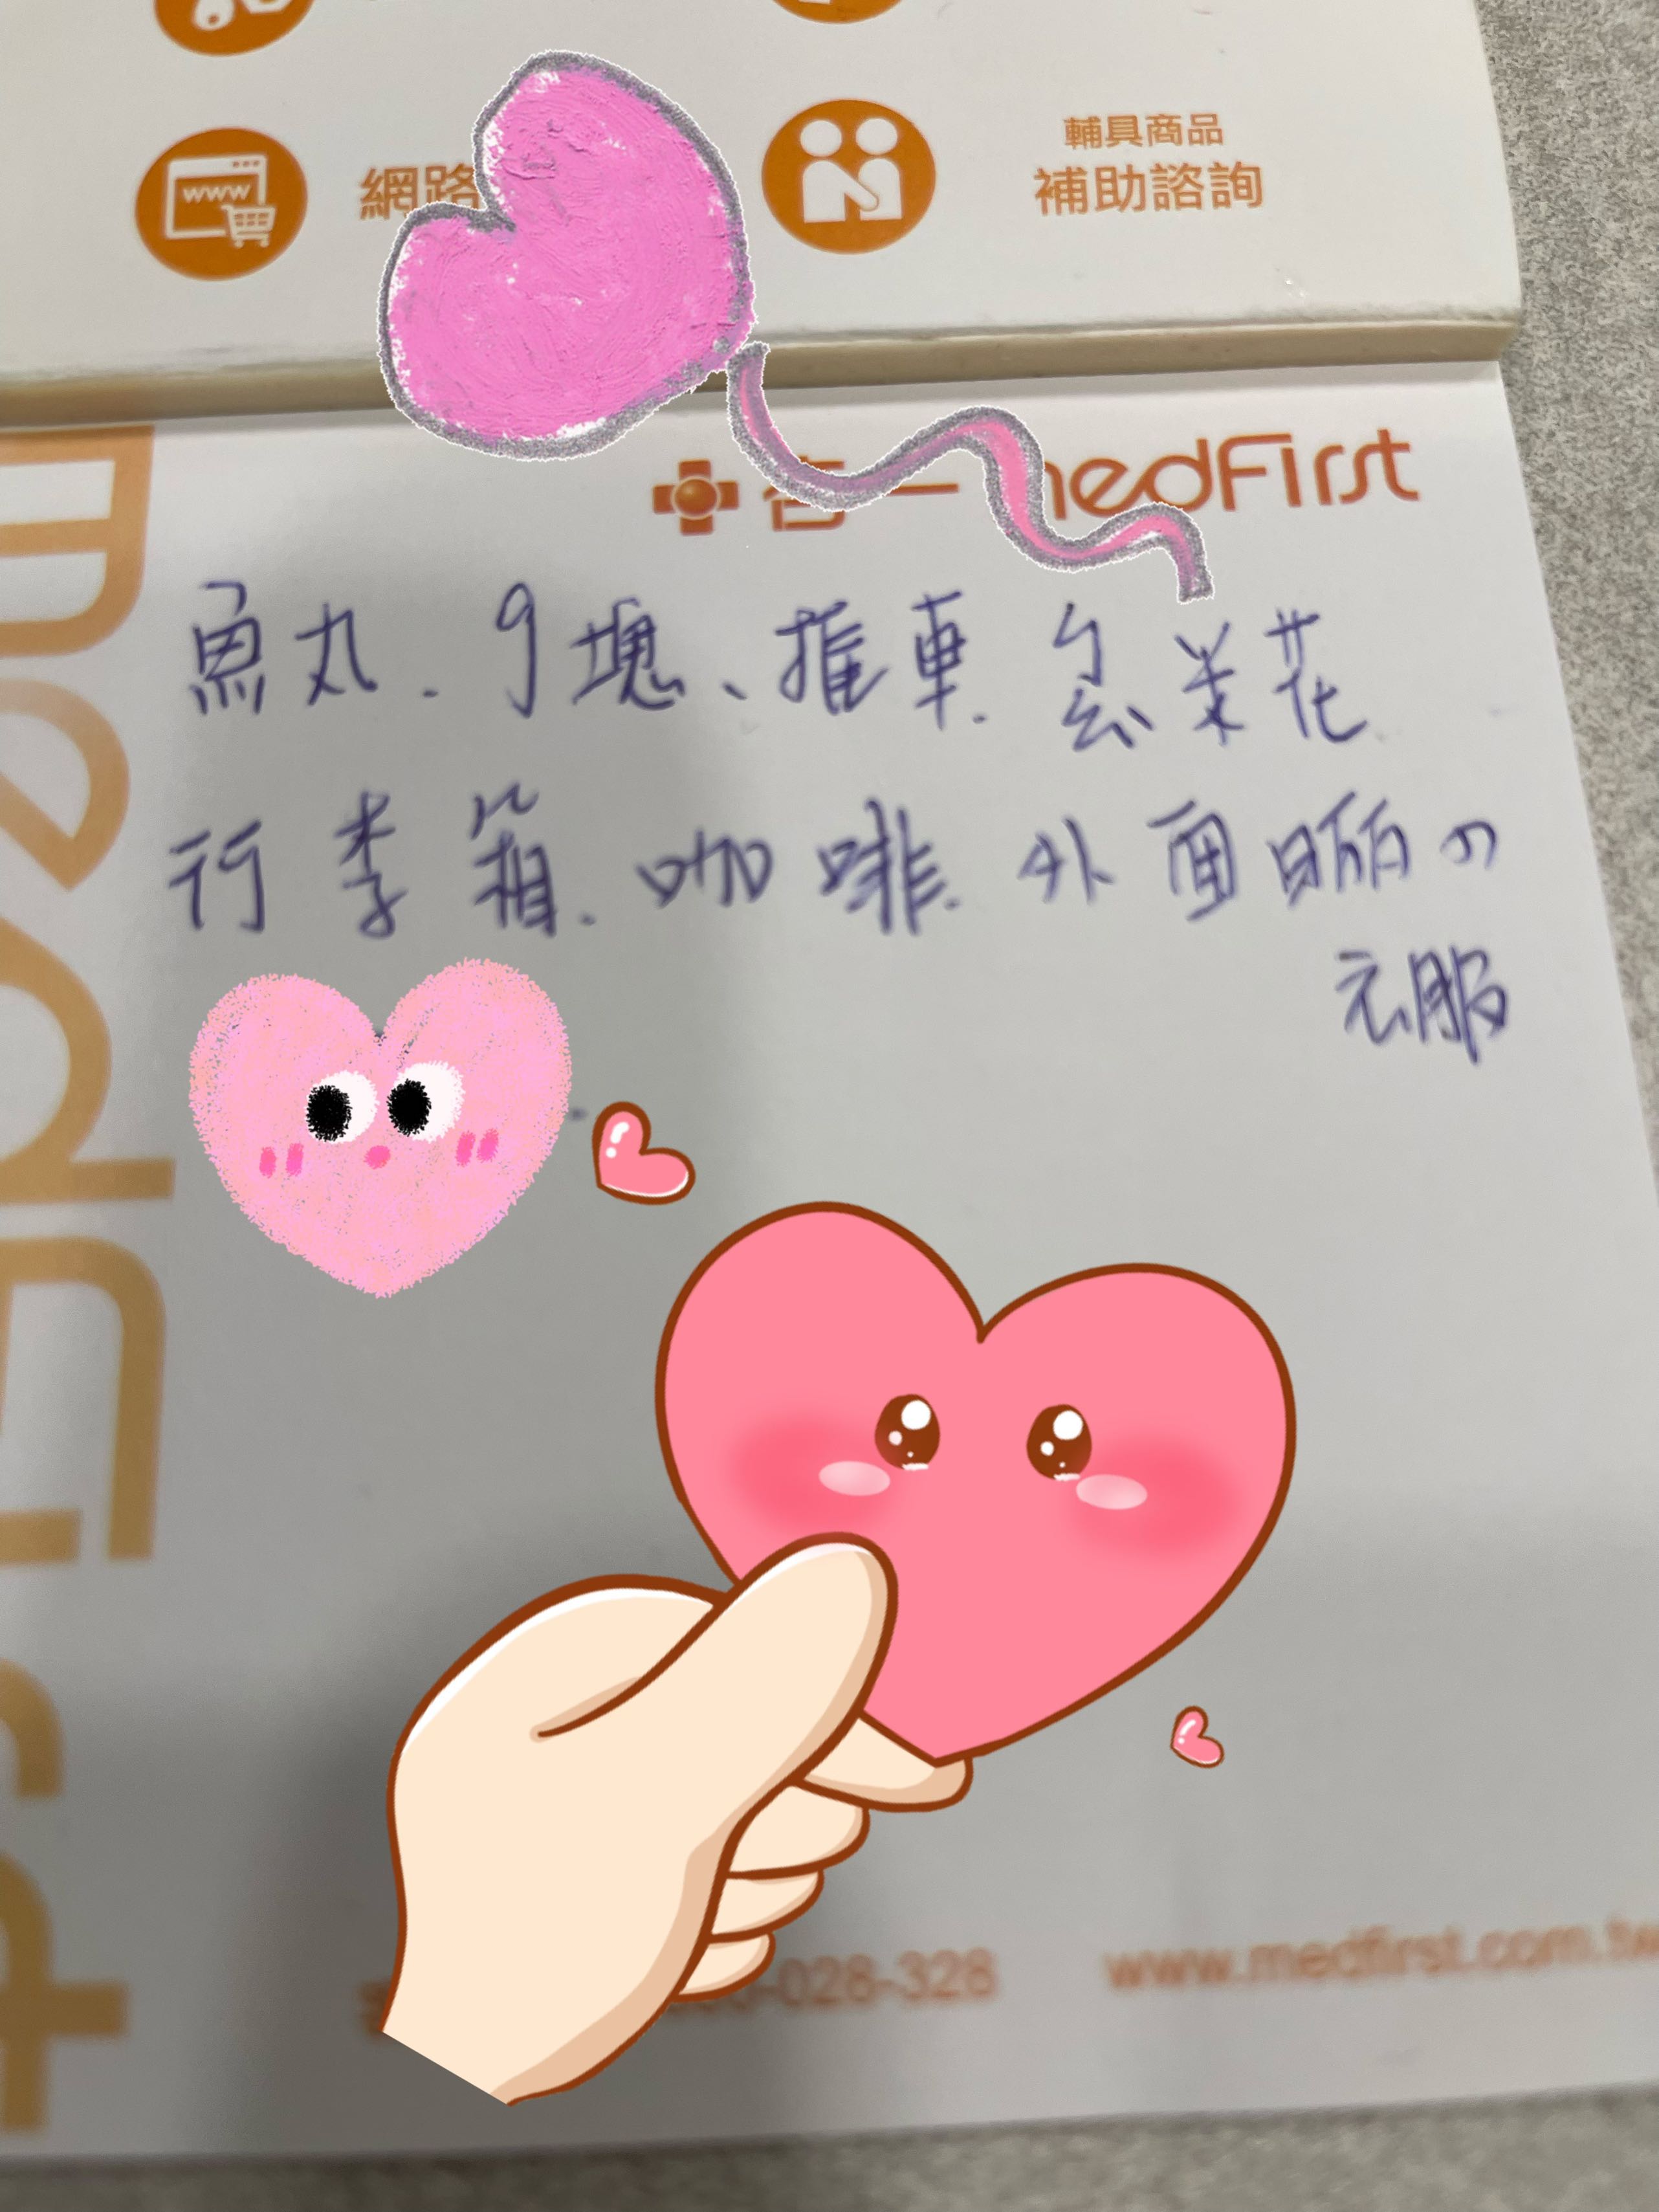 www
網路
輔具商品
補助諮詢
杏一 medFirst
魚丸、9塊、推車 ㄘㄠˋ菜花
行李箱、咖啡、外面晒の
衣服
-028-328 www.medfirst.com.tw
medFirst